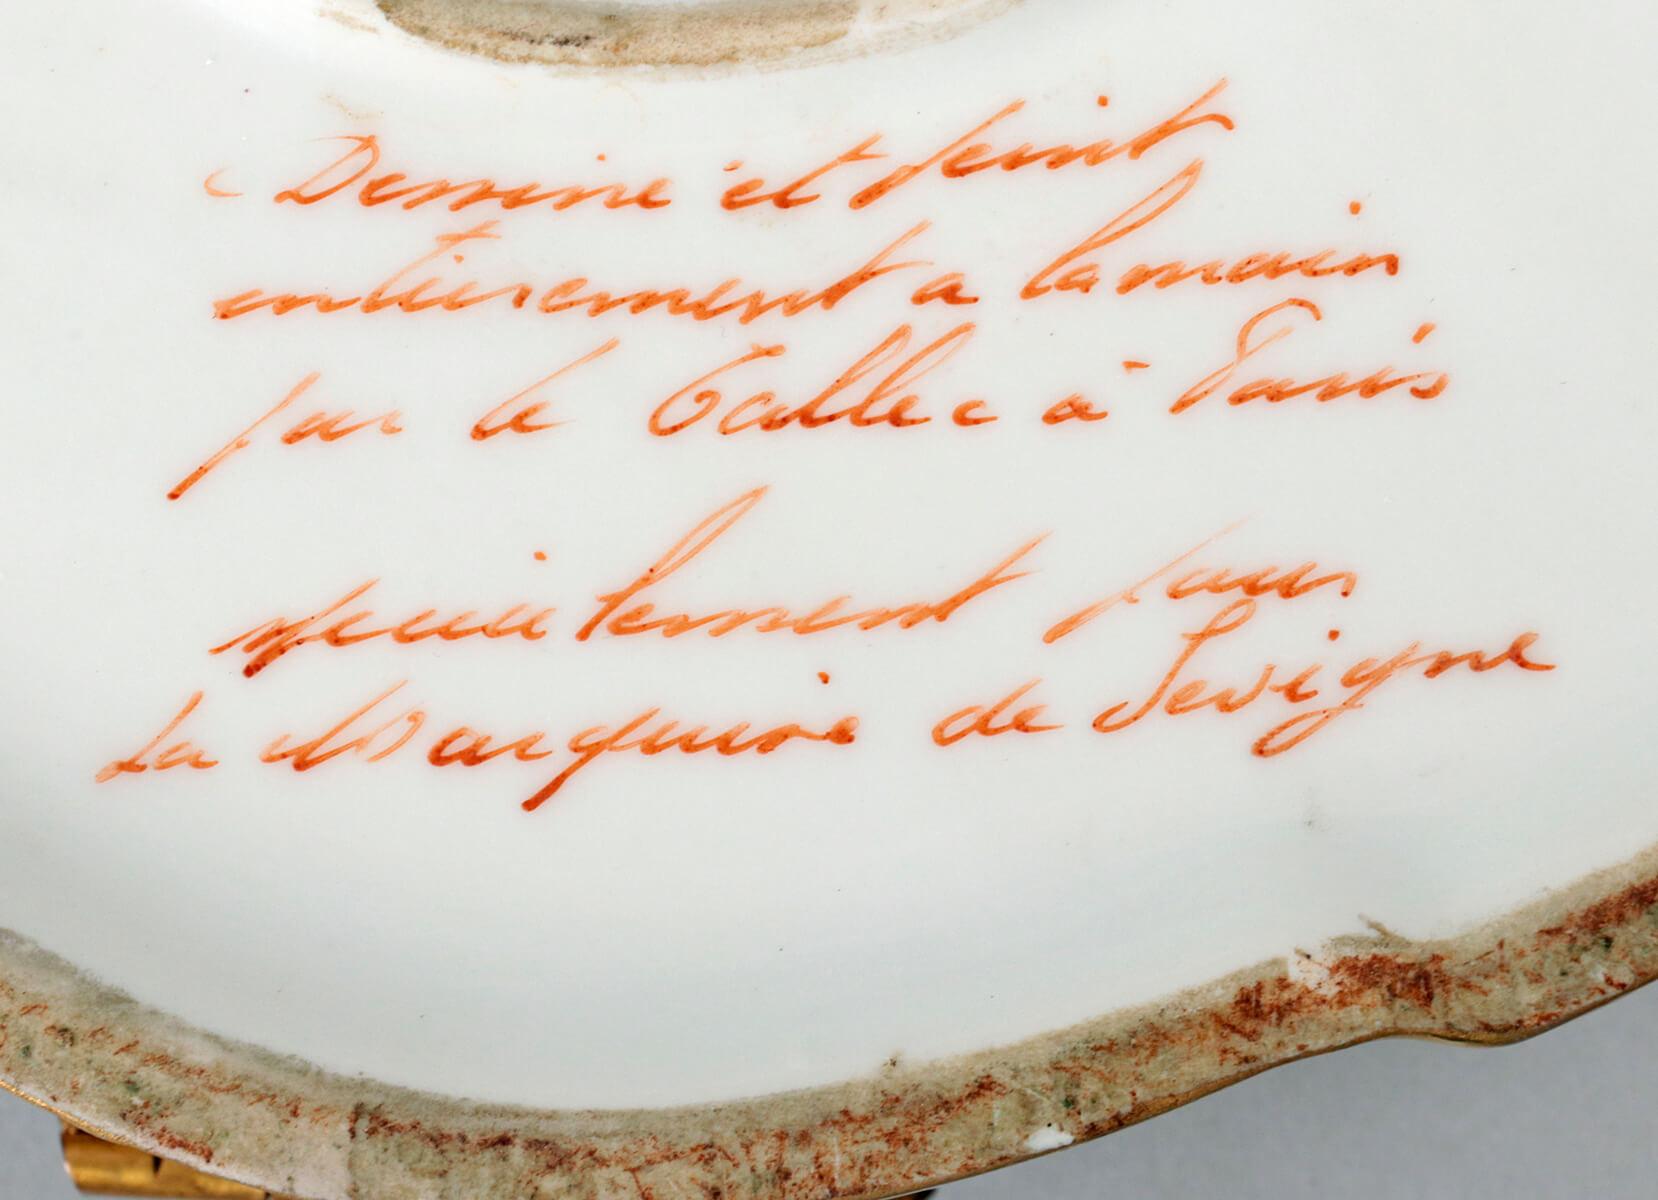 Dessine et peint
entierement a la main
par le Tallec à Paris
specialement pour
La Marquise de Sevigne